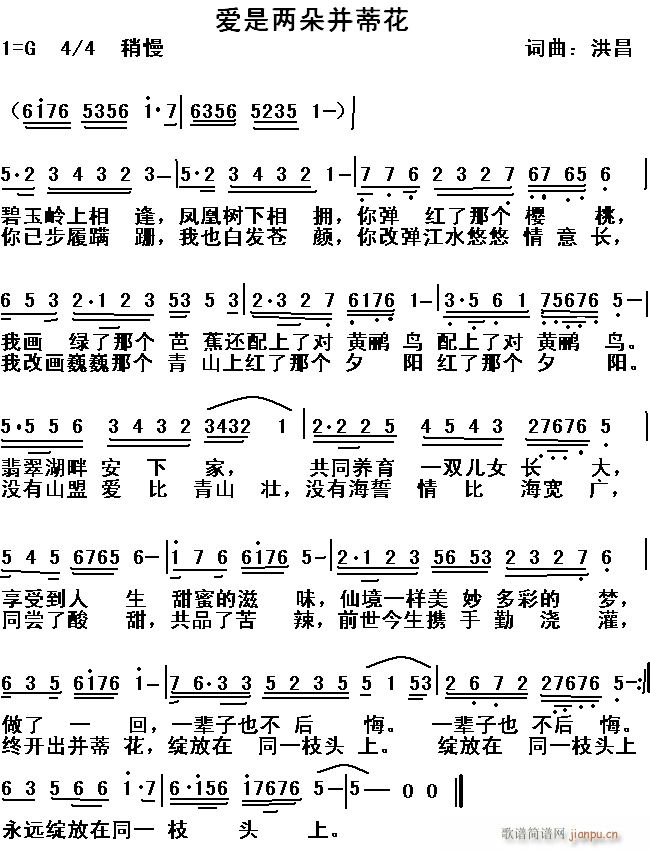 爱是两朵并蒂花
1=G 4/4 稍慢 词曲：洪昌
（6176 5356 1·7 | 6356 5235 1-）
5·2 3432 3- | 5·2 3432 1- | 776 2327 6765 6
碧玉岭上相 逢，凤凰树下相 拥，你弹 红了那个 樱 桃，
你已步履蹒 跚，我也白发苍 颜，你改弹江水悠悠 情 意 长，
653 2·123 53 53 | 2·327 6176 1- | 3·561 75676 5-
我画 绿了那个 芭 蕉还配上了对 黄鹂 鸟 配上了对 黄鹂 鸟。
我改画巍巍那个 青 山上红了那个 夕 阳 红了那个 夕 阳。
5·556 3432 3432 1 | 2·225 4543 27676 5
翡翠湖畔 安 下 家， 共同养育 一双儿女 长 大，
没有山盟 爱 比 青山 壮，没有海誓 情 比 海宽 广，
545 6765 6- | 176 6176 5- | 2·123 5653 2327 6
享受到人 生 甜蜜的滋 味，仙境一样美 妙 多彩的 梦，
同尝了酸 甜，共品了苦 辣，前世今生携 手 勤 浇 灌，
635 6176 1- | 7 6·33 5235 5 1 53 | 2672 27676 5-:||
做了 一 回，一辈子也不 后 悔。 一辈子也 不后 悔。
终开出并蒂 花，绽放在 同一枝头 上。 绽放在 同一枝头上
63 566 1·7 | 6·156 17676 5- | 5-00 ||
永远绽放在同一 枝 头 上。
歌谱简谱网 jianpu.cn